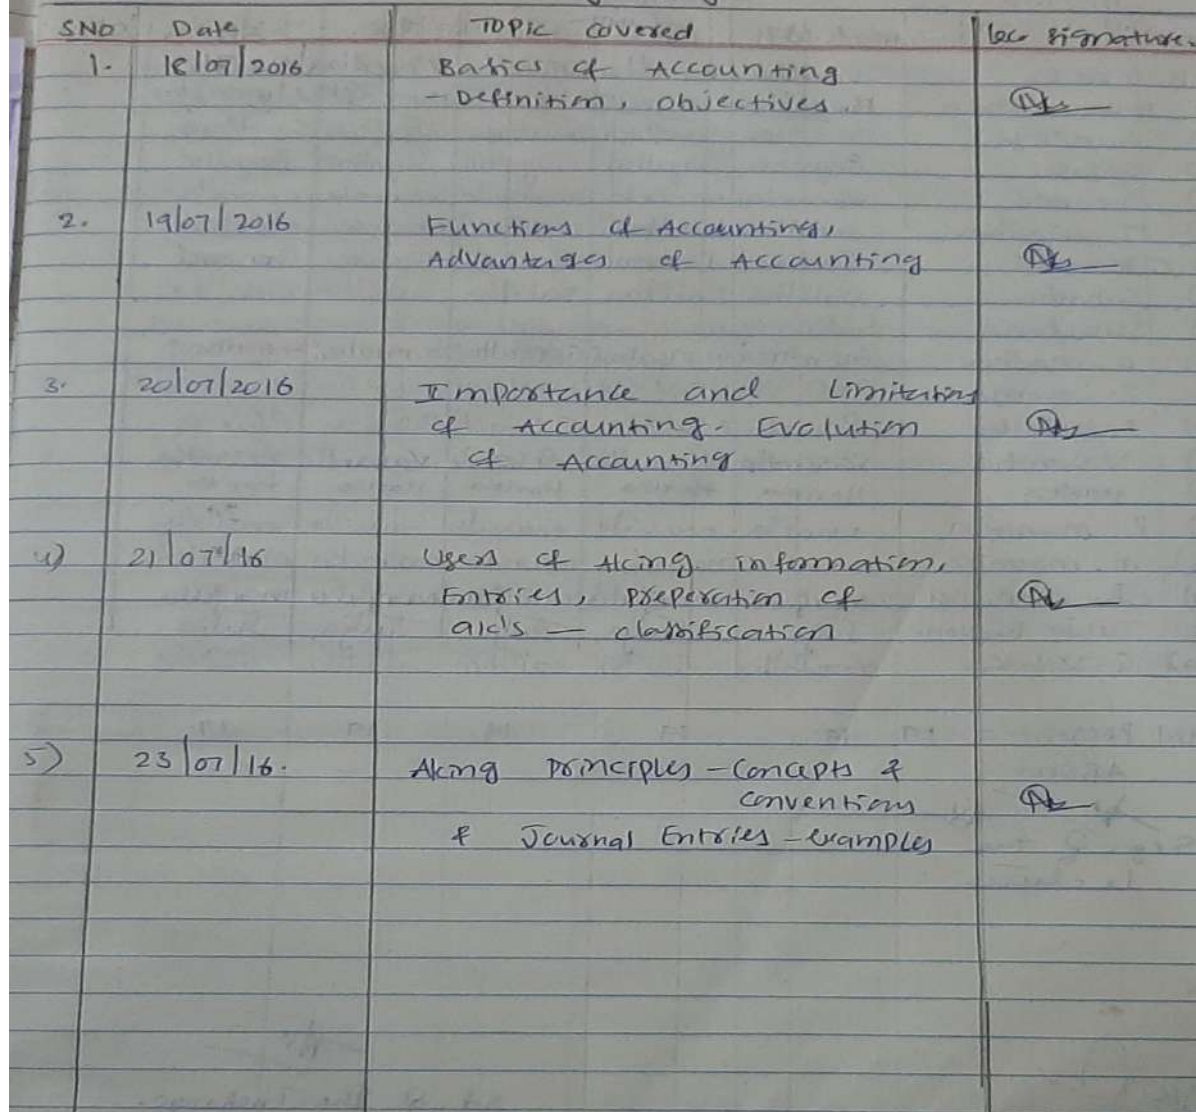 SNO Date Topic covered lec signature.
1. 18/07/2016 Basics of Accounting
- Definition, objectives.
2. 19/07/2016 Functions of Accounting,
Advantages of Accounting
3. 20/07/2016 Importance and Limitations
of Accounting. Evolution
of Accounting
4) 21/07/16 Users of Acing information,
Entries, preperation of
a/c's - classification
5) 23/07/16. Acing principles - Concepts &
conventions
& Journal Entries - examples